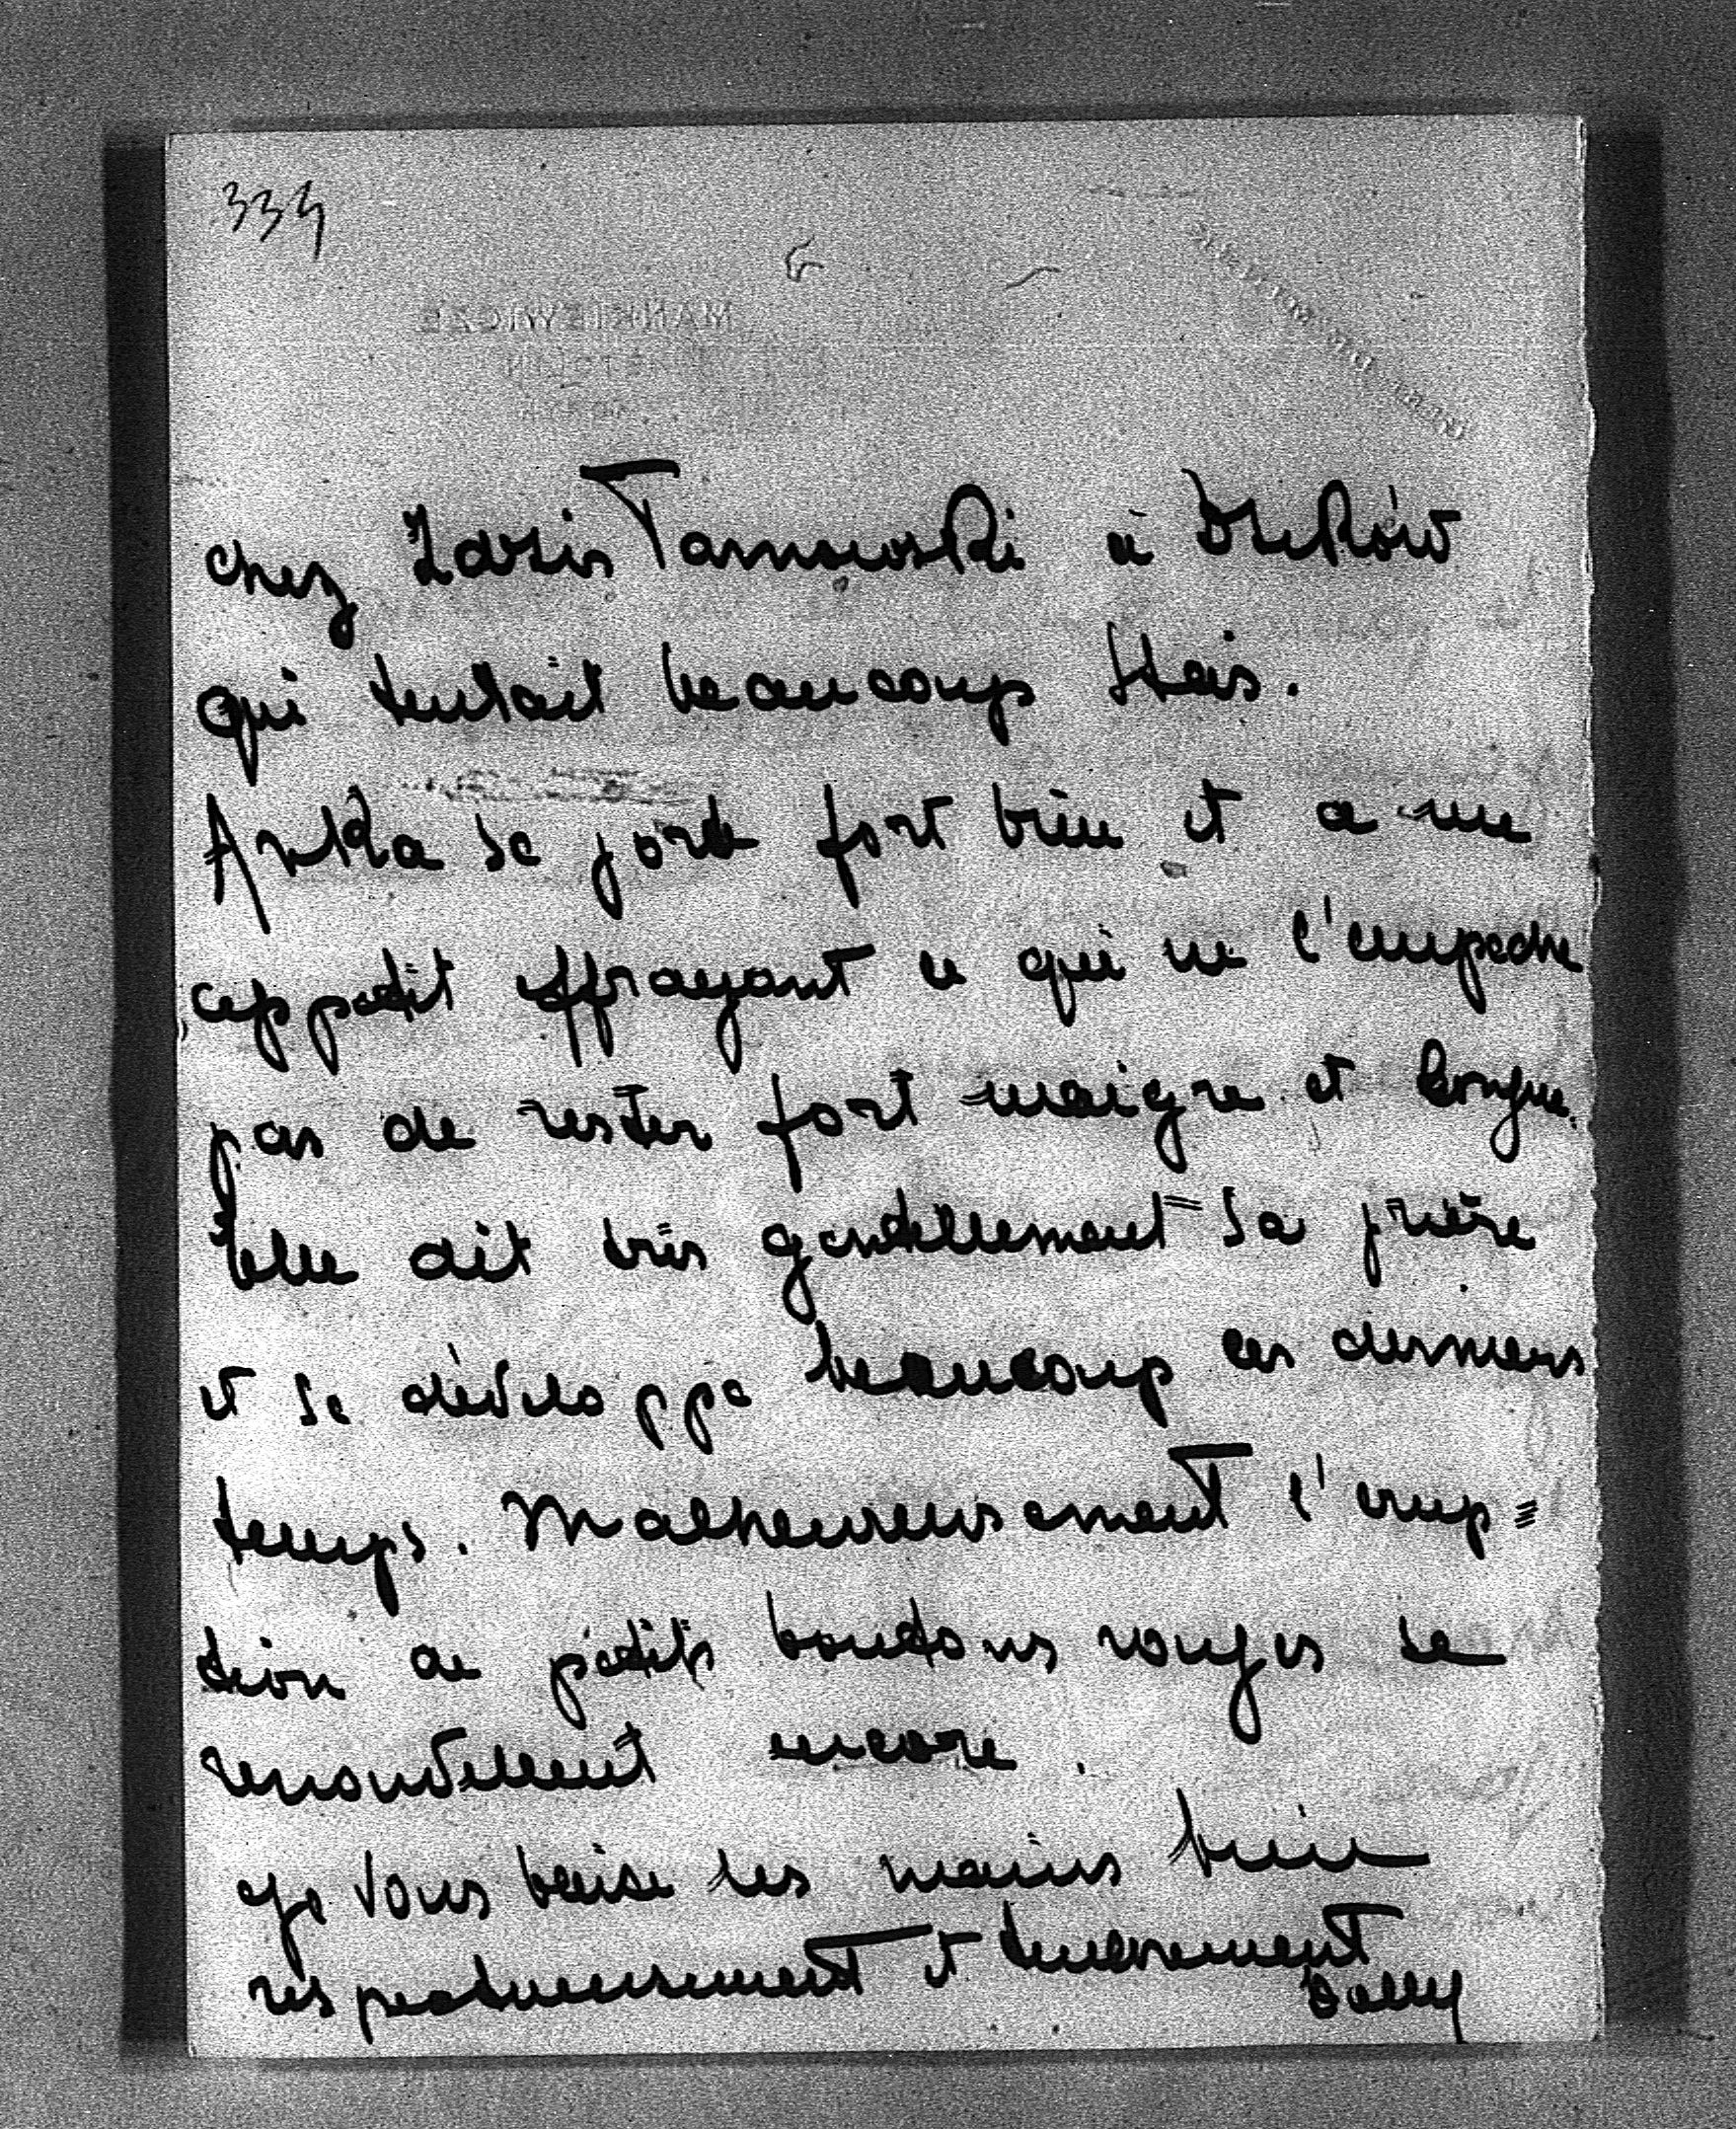 334
MANKIEWICZE
chez Zdzis Tarnowski à Dzików
qui tentait beaucoup Stas.
Anka se porte fort bien et a une
appetit effrayant ce qui ne l'empeche
pas de rester fort maigre et longue.
Elle dit très gentillement sa prière
et se développe beaucoup ces derniers
temps. Malheureusement l'erup=
tion de petits boutons rouges se
renouvellent encore.
Je vous baise les mains bien
respectueusement et tendrement
Dolly